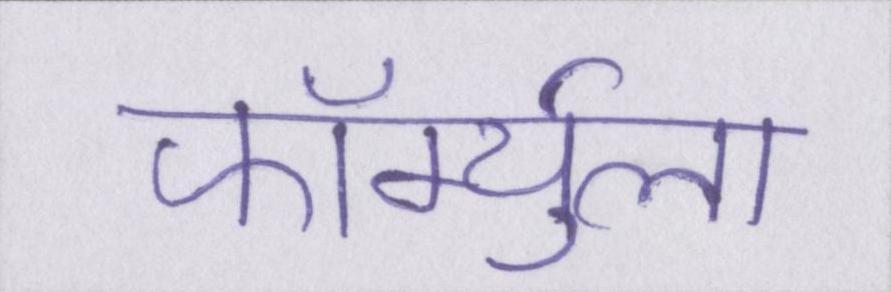 फॉर्म्युला